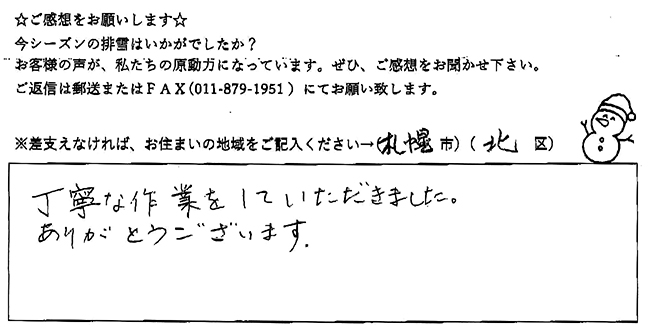 ☆ご感想をお願いします☆
今シーズンの排雪はいかがでしたか？
お客様の声が、私たちの原動力になっています。ぜひ、ご感想をお聞かせ下さい。
ご返信は郵送またはＦＡＸ(011-879-1951) にてお願い致します。
※差支えなければ、お住まいの地域をご記入ください→(札幌市) (北 区)
丁寧な作業をしていただきました。
ありがとうございます.